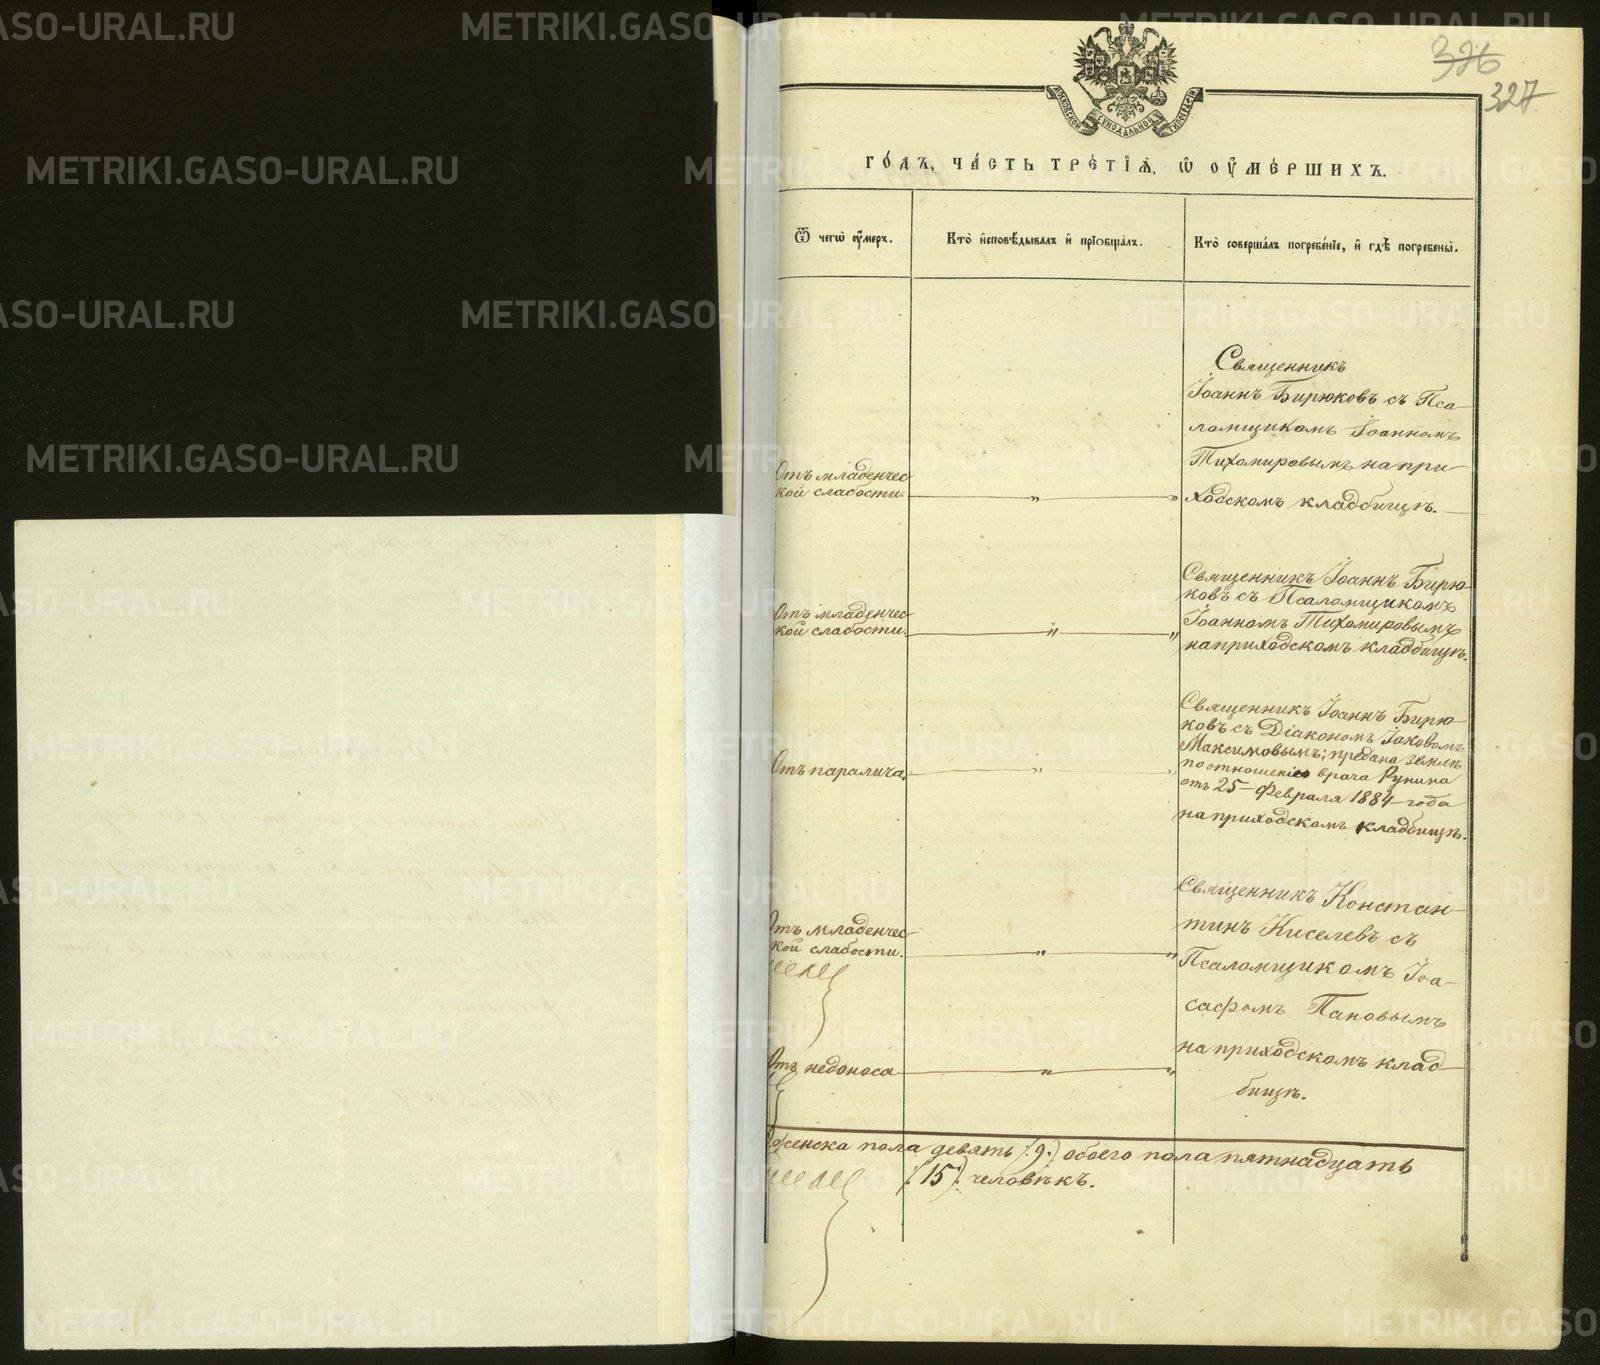 326
327
МОСКОВСКОЙ СѴНОДАЛЬНОЙ ТИПОГРАФІИ
ГО́ДЪ, ЧА́СТЬ ТРЕ́ТІѦ, Ѡ҆ ОУ҆МЕ́РШИХЪ.
Ѿ чегѡ̀ оу҆́меръ.
Кто̀ и҆сповѣ́дывалъ и҆ прїѡбща́лъ.
Кто̀ соверша́лъ погребе́нїе, и҆ гдѣ̀ погребены̀.
Отъ младенчес
кой слабости.
„
„
Священникъ
Іоаннъ Бирюковъ съ Пса-
ломщикомъ Іоанномъ
Тихомировымъ на при-
ходскомъ кладбищѣ.
Отъ младенчес
кой слабости.
„
„
Священникъ Іоаннъ Бирю-
ковъ съ Псаломщикомъ
Іоанномъ Тихомировымъ
на приходскомъ кладбищѣ.
Отъ паралича.
„
„
Священникъ Іоаннъ Бирю-
ковъ съ Діакономъ Іаковомъ
Максимовымъ; предана землѣ
по отношенію врача Рунина
отъ 25 Февраля 1884 года
на приходскомъ кладбищѣ.
Отъ младенчес-
кой слабости.
„
„
Священникъ Констан-
тинъ Киселевъ съ
Псаломщикомъ Іоа-
сафомъ Пановымъ
на приходскомъ клад-
бищѣ.
Отъ недоноса
„
„
женска пола девять /.9./ обоего пола пятнадцать
/.15./ человѣкъ.
METRIKI.GASO-URAL.RU